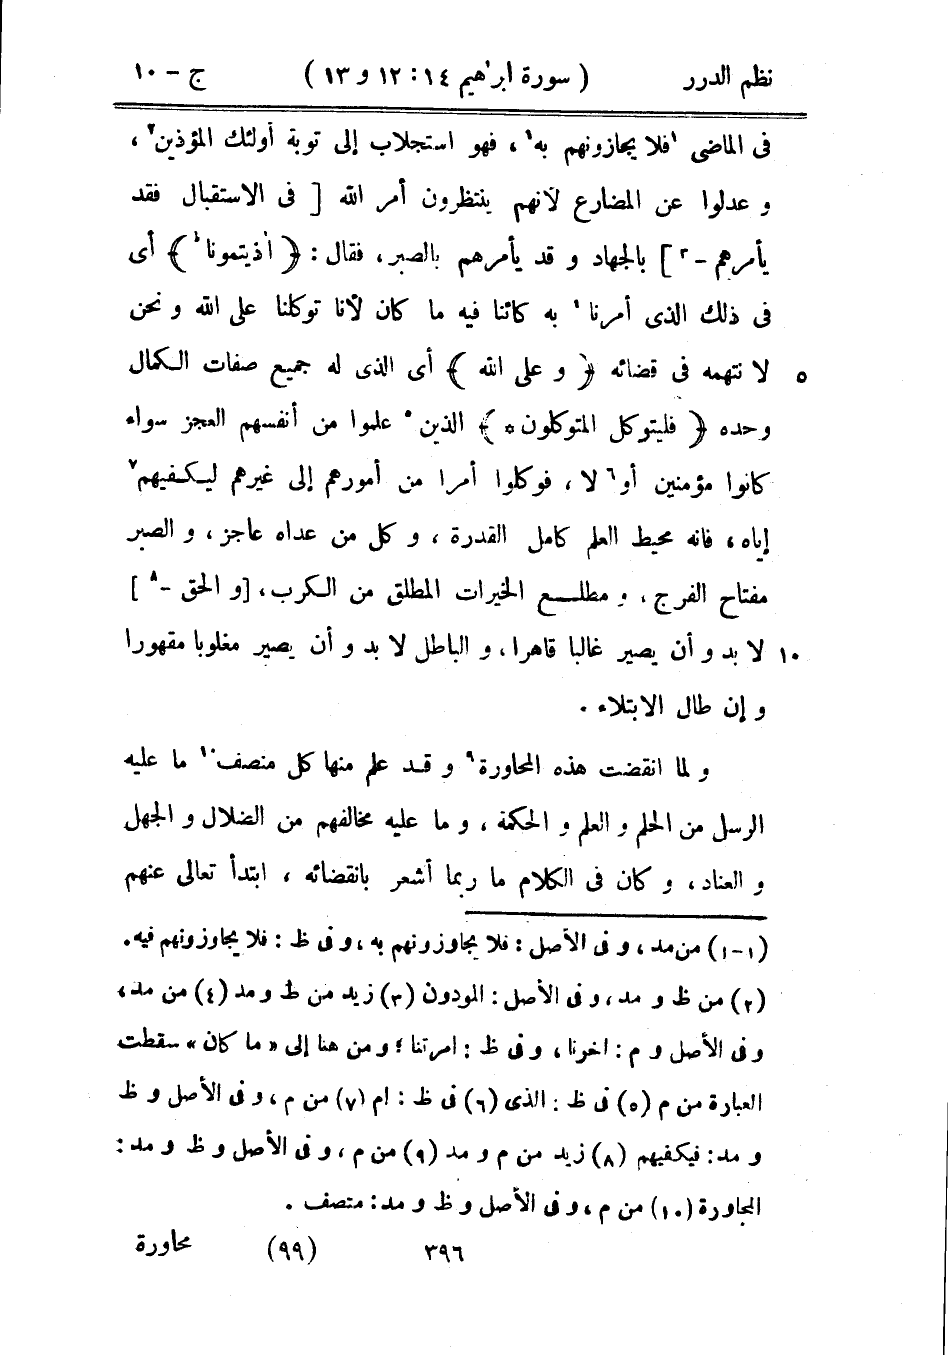 نظم الدرر ( سورة ابرٰهيم ١٤ : ١٢ و ١٣ ) ج – ١٠
فى الماضى ١فلا يجازونهم به١ ، فهو استجلاب إلى توبة أولئك المؤذين٢ ،
و عدلوا عن المضارع لأنهم ينتظرون أمر الله [ فى الاستقبال فقد
يأمرهم – ٣ ] بالجهاد و قد يأمرهم بالصبر ، فقال : ﴿ اٰذيتمونا ۖ ﴾ أى
فى ذلك الذى أمرنا٤ به كائنا فيه ما كان لأنا توكلنا على الله و نحن
٥ لا نتهمه فى قضائه ﴿ و على الله ﴾ أى الذى له جميع صفات الكمال
وحده ﴿ فليتوكل المتوكلون * ﴾ الذين٥ علموا من أنفسهم العجز سواء
كانوا مؤمنين أو٦ لا ، فوكلوا أمرا من أمورهم إلى غيرهم ليكفيهم٧
إياه ، فانه محيط العلم كامل القدرة ، و كل من عداه عاجز ، و الصبر
مفتاح الفرج ، و مطلع الخيرات المطلق من الكرب ، [ و الحق – ٨ ]
١٠ لا بد و أن يصير غالبا قاهرا ، و الباطل لا بد و أن يصير مغلوبا مقهورا
و إن طال الابتلاء .
و لما انقضت هذه المحاورة٩ و قد علم منها كل منصف١٠ ما عليه
الرسل من الحلم و العلم و الحكمة ، و ما عليه مخالفهم من الضلال و الجهل
و العناد ، و كان فى الكلام ما ربما أشعر بانقضائه ، ابتدأ تعالى عنهم
(١-١) من مد ، و فى الأصل : فلا يجاوزونهم به ، و فى ظ : فلا يجاوزونهم فيه .
(٢) من ظ و مد ، و فى الأصل : المودون (٣) زيد من ظ و مد (٤) من مد ،
و فى الأصل و م : اخرنا ، و فى ظ : امرتنا ؛ و من هنا إلى « ما كان » سقطت
العبارة من م (٥) فى ظ : الذى (٦) فى ظ : ام (٧) من م ، و فى الأصل و ظ
و مد : فيكفيهم (٨) زيد من م و مد (٩) من م ، و فى الأصل و ظ و مد :
المجاورة (١٠) من م ، و فى الأصل و ظ و مد : متصف .
٣٩٦ (٩٩) محاورة